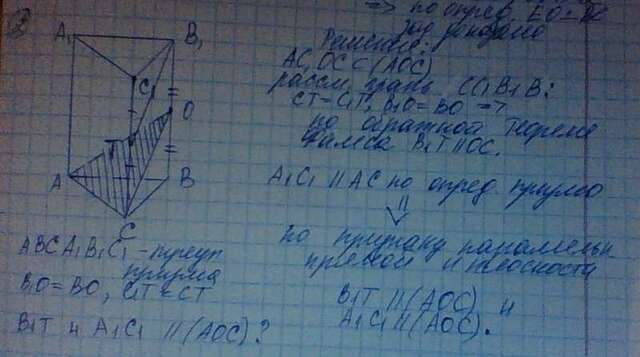 2
=> по опред. EO = DC
задоказано
Решение:
AC, OC ⊂ (AOC)
рассм. грань CC₁B₁B:
CT = C₁T, B₁O = BO =>
по обратной теореме
Фалеса B₁T || OC.
A₁C₁ || AC по опред. призмы
⇓
по признаку параллельн
прямой и плоскости
B₁T || (AOC) и
A₁C₁ || (AOC).
A₁
B₁
C₁
O
T
A
B
C
ABCA₁B₁C₁ - треуг
призма
B₁O = BO, C₁T = CT
B₁T и A₁C₁ || (AOC)?